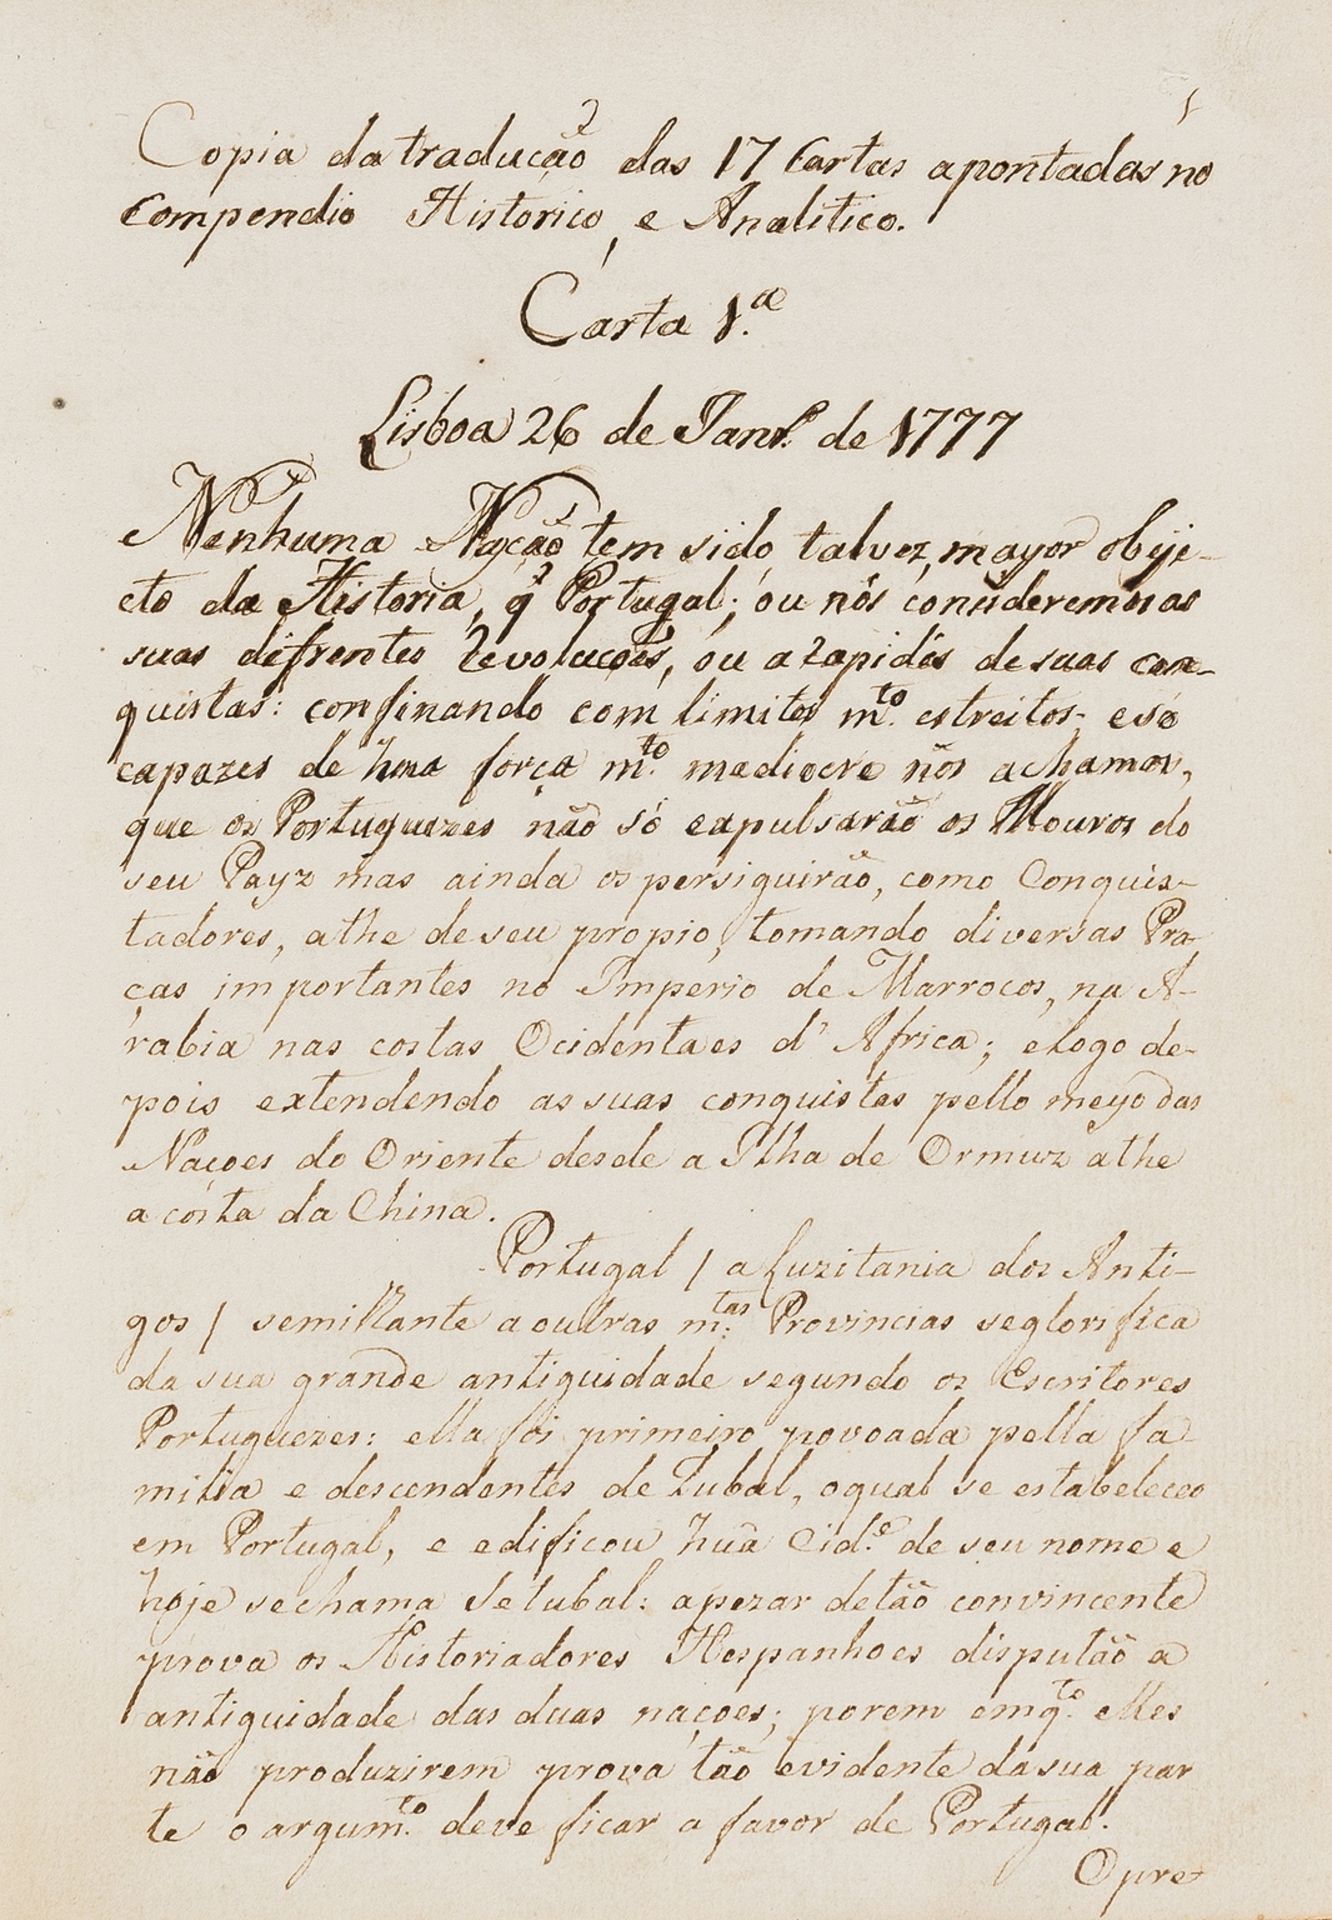 1
Copia da tradução das 17 Cartas apontadas no
Compendio Historico, e Analitico.
Carta 1.ª
Lisboa 26 de Janr.º de 1777
Nenhuma Nação tem sido, talvez, mayor obje-
cto da Historia, q̃ Portugal; ou nós consideremos as
suas difrentes Revoluções, ou a rapidês de suas con-
quistas: confinando com limites m.to estreitos, e só
capazes de huã força m.to mediocre nós achamos,
que os Portuguezes não só expulsarão os Mouros do
seu Payz mas ainda os perseguirão, como Conquis-
tadores, athe de seu propio, tomando diversas Pra-
ças importantes no Imperio de Marrocos, na A-
rabia nas costas Ocidentaes d' Africa; e logo de-
pois extendendo as suas conquistas pello meyo das
Naçoes do Oriente desde a Ilha de Ormuz athe
a costa da China.
Portugal / a Luzitania dos Anti-
gos / semilhante a outras m.tas Provincias se glorifica
da sua grande antiguidade segundo os Escritores
Portuguezes: ella foi primeiro povoada pella fa-
milia e descendentes de Tubal, o qual se estabeleceo
em Portugal, e edificou huã Cid.e de seu nome e
hoje se chama Setubal: apezar de tão convincente
prova os Historiadores Hespanhoes disputão a
antiguidade das duas naçoes; porem emq.to elles
não produzirem prova tão evidente da sua par
te o argum.to deve ficar a favor de Portugal.
O pre-